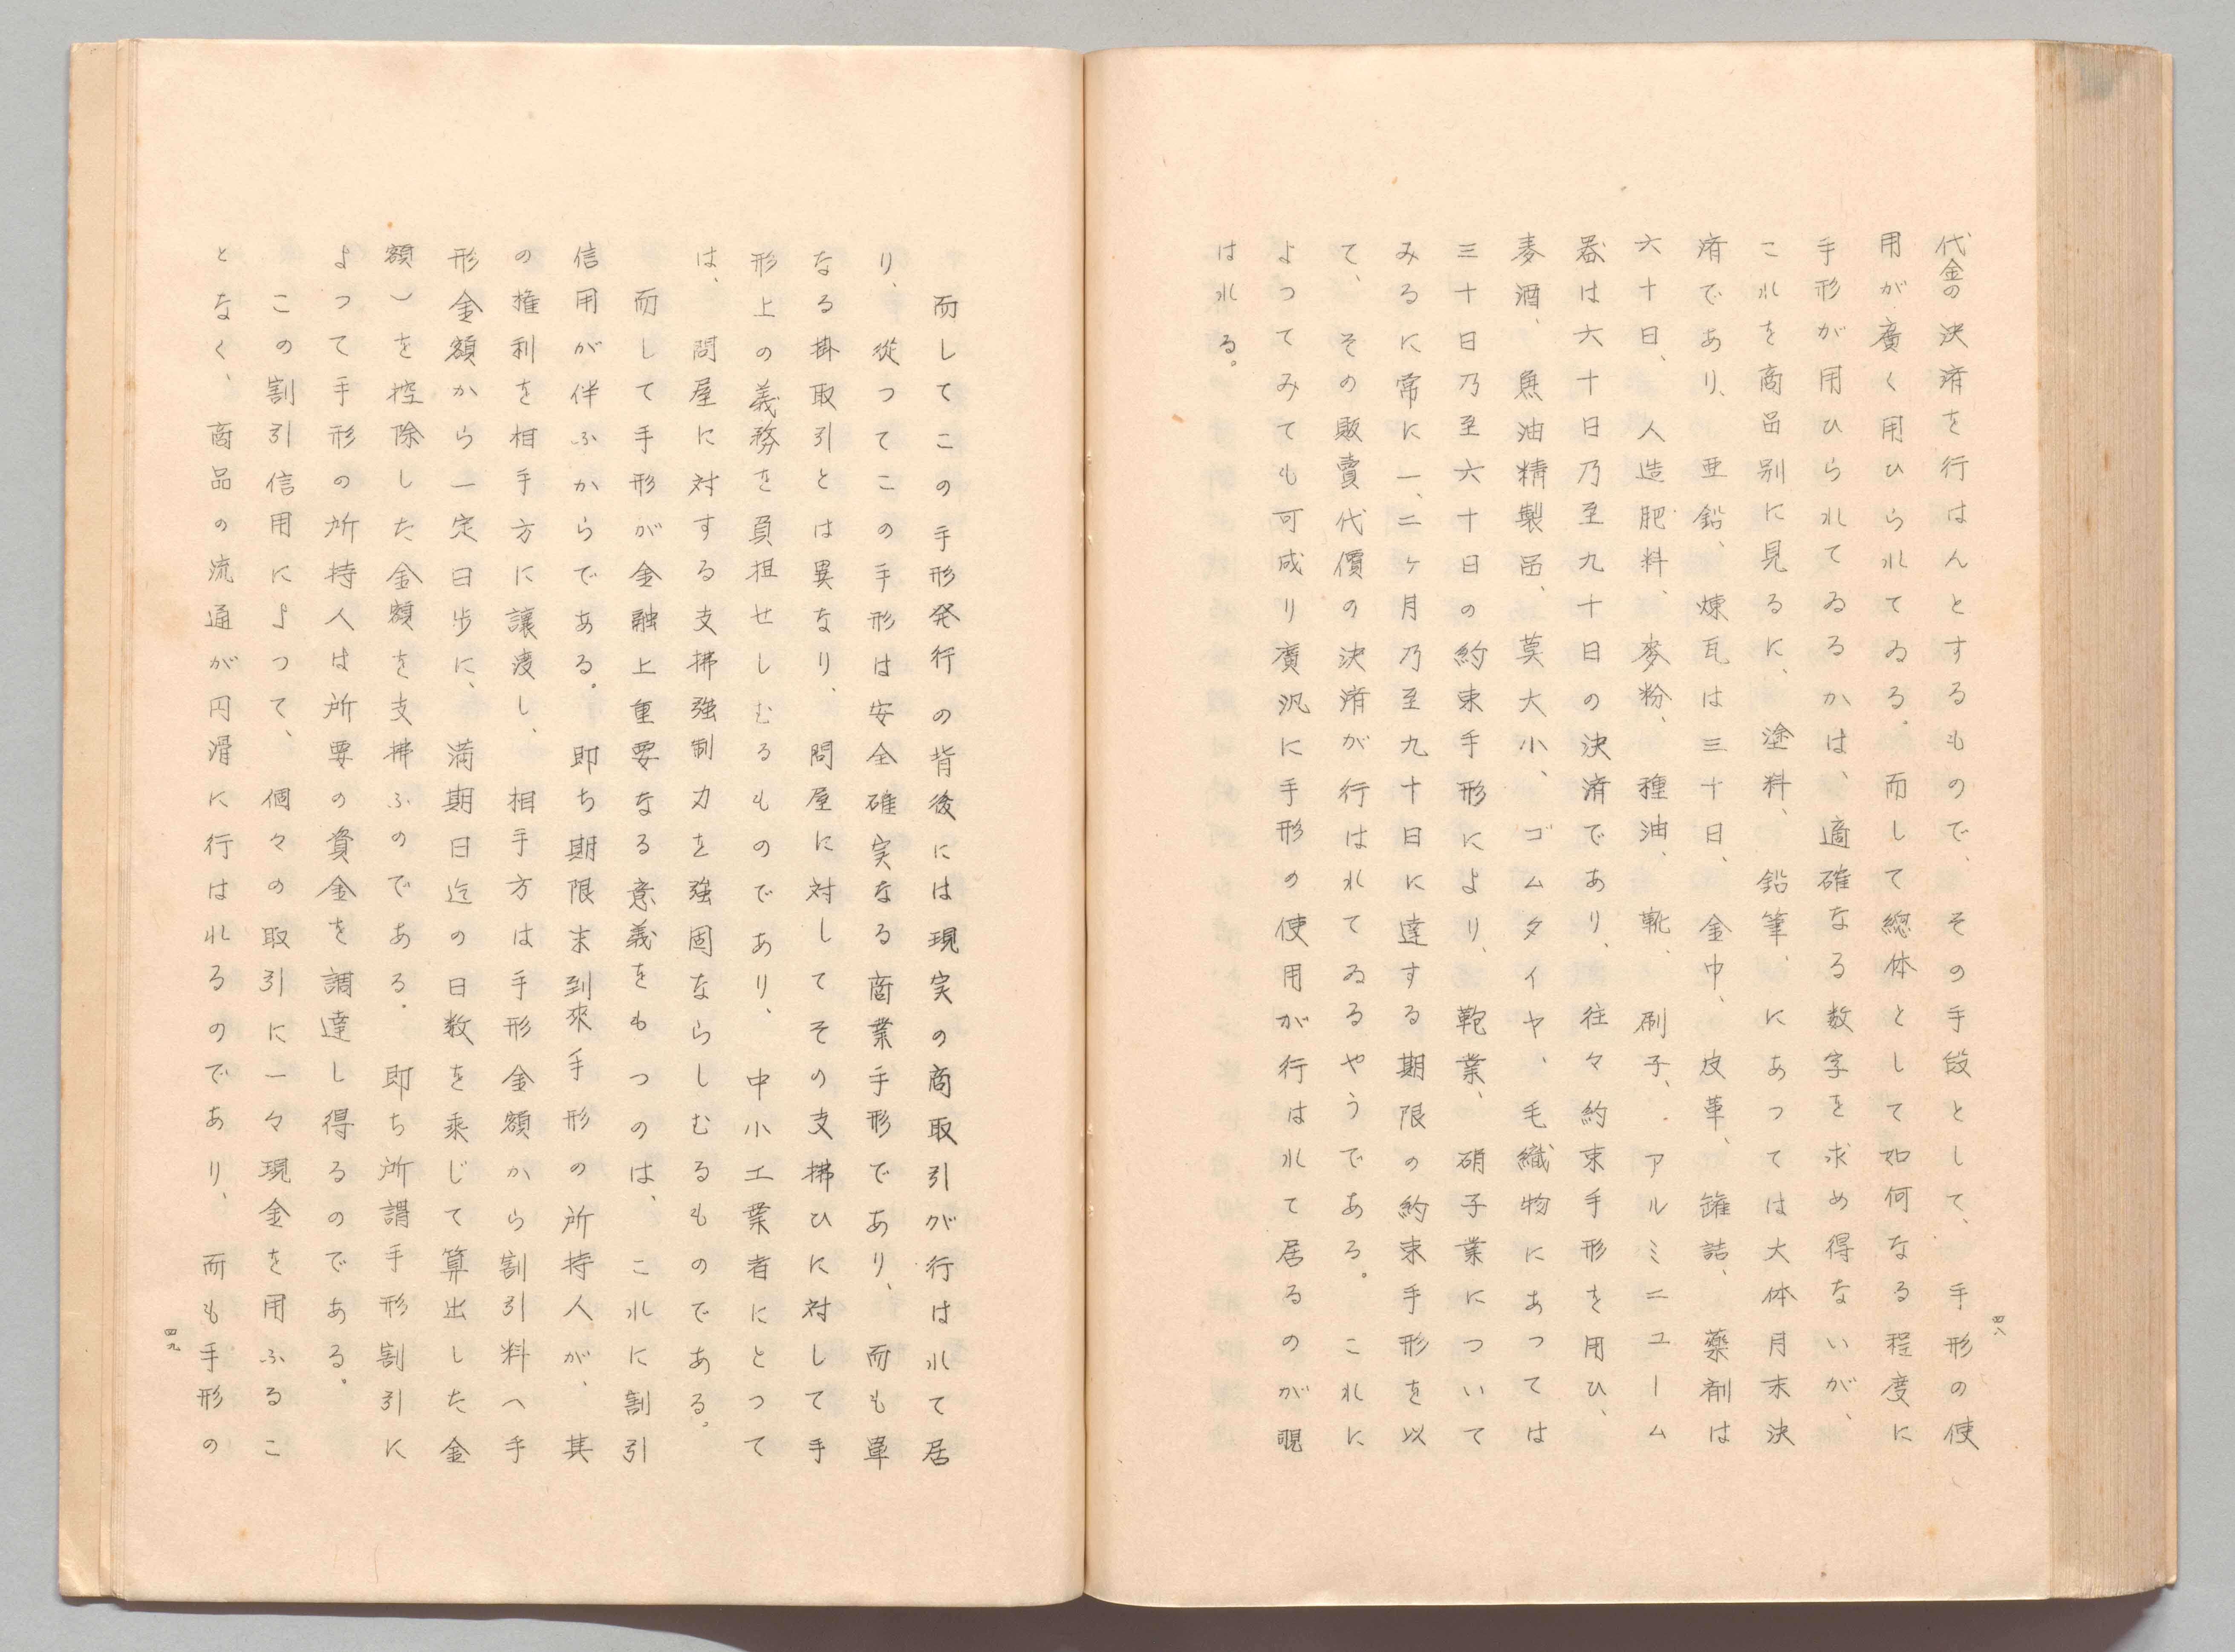 代金の決済を行はんとするもので、その手段として、手形の使
用が廣く用ひられてゐる。而して総体として如何なる程度に
手形が用ひられてゐるかは、適確なる数字を求め得ないが、
これを商品別に見るに、塗料、鉛筆、にあつては大体月末決
済であり、亜鉛、煉瓦は三十日、金巾、皮革、罐詰、薬剤は
六十日、人造肥料、麥粉、種油、靴、刷子、アルミニューム
器は六十日乃至九十日の決済であり、往々約束手形を用ひ、
麦酒、魚油精製品、莫大小、ゴムタイヤ、毛織物にあつては
三十日乃至六十日の約束手形により、鞄業、硝子業について
みるに常に一、二ヶ月乃至九十日に達する期限の約束手形を以
て、その販賣代價の決済が行はれてゐるやうである。これに
よつてみても可成り廣汎に手形の使用が行はれて居るのが覗
はれる。
四八
而してこの手形発行の背後には現実の商取引が行はれて居
り、從つてこの手形は安全確実なる商業手形であり、而も単
なる掛取引とは異なり、問屋に対してその支拂ひに対して手
形上の義務を負担せしむるものであり、中小工業者にとつて
は、問屋に対する支拂強制力を強固ならしむるものである。
而して手形が金融上重要なる意義をもつのは、これに割引
信用が伴ふからである。即ち期限末到來手形の所持人が、其
の権利を相手方に讓渡し、相手方は手形金額から割引料(手
形金額から一定日歩に、満期日迄の日数を乘じて算出した金
額)を控除した金額を支拂ふのである。即ち所謂手形割引に
よつて手形の所持人は所要の資金を調達し得るのである。
この割引信用によつて、個々の取引に一々現金を用ふるこ
となく、商品の流通が円滑に行はれるのであり、而も手形の
四九